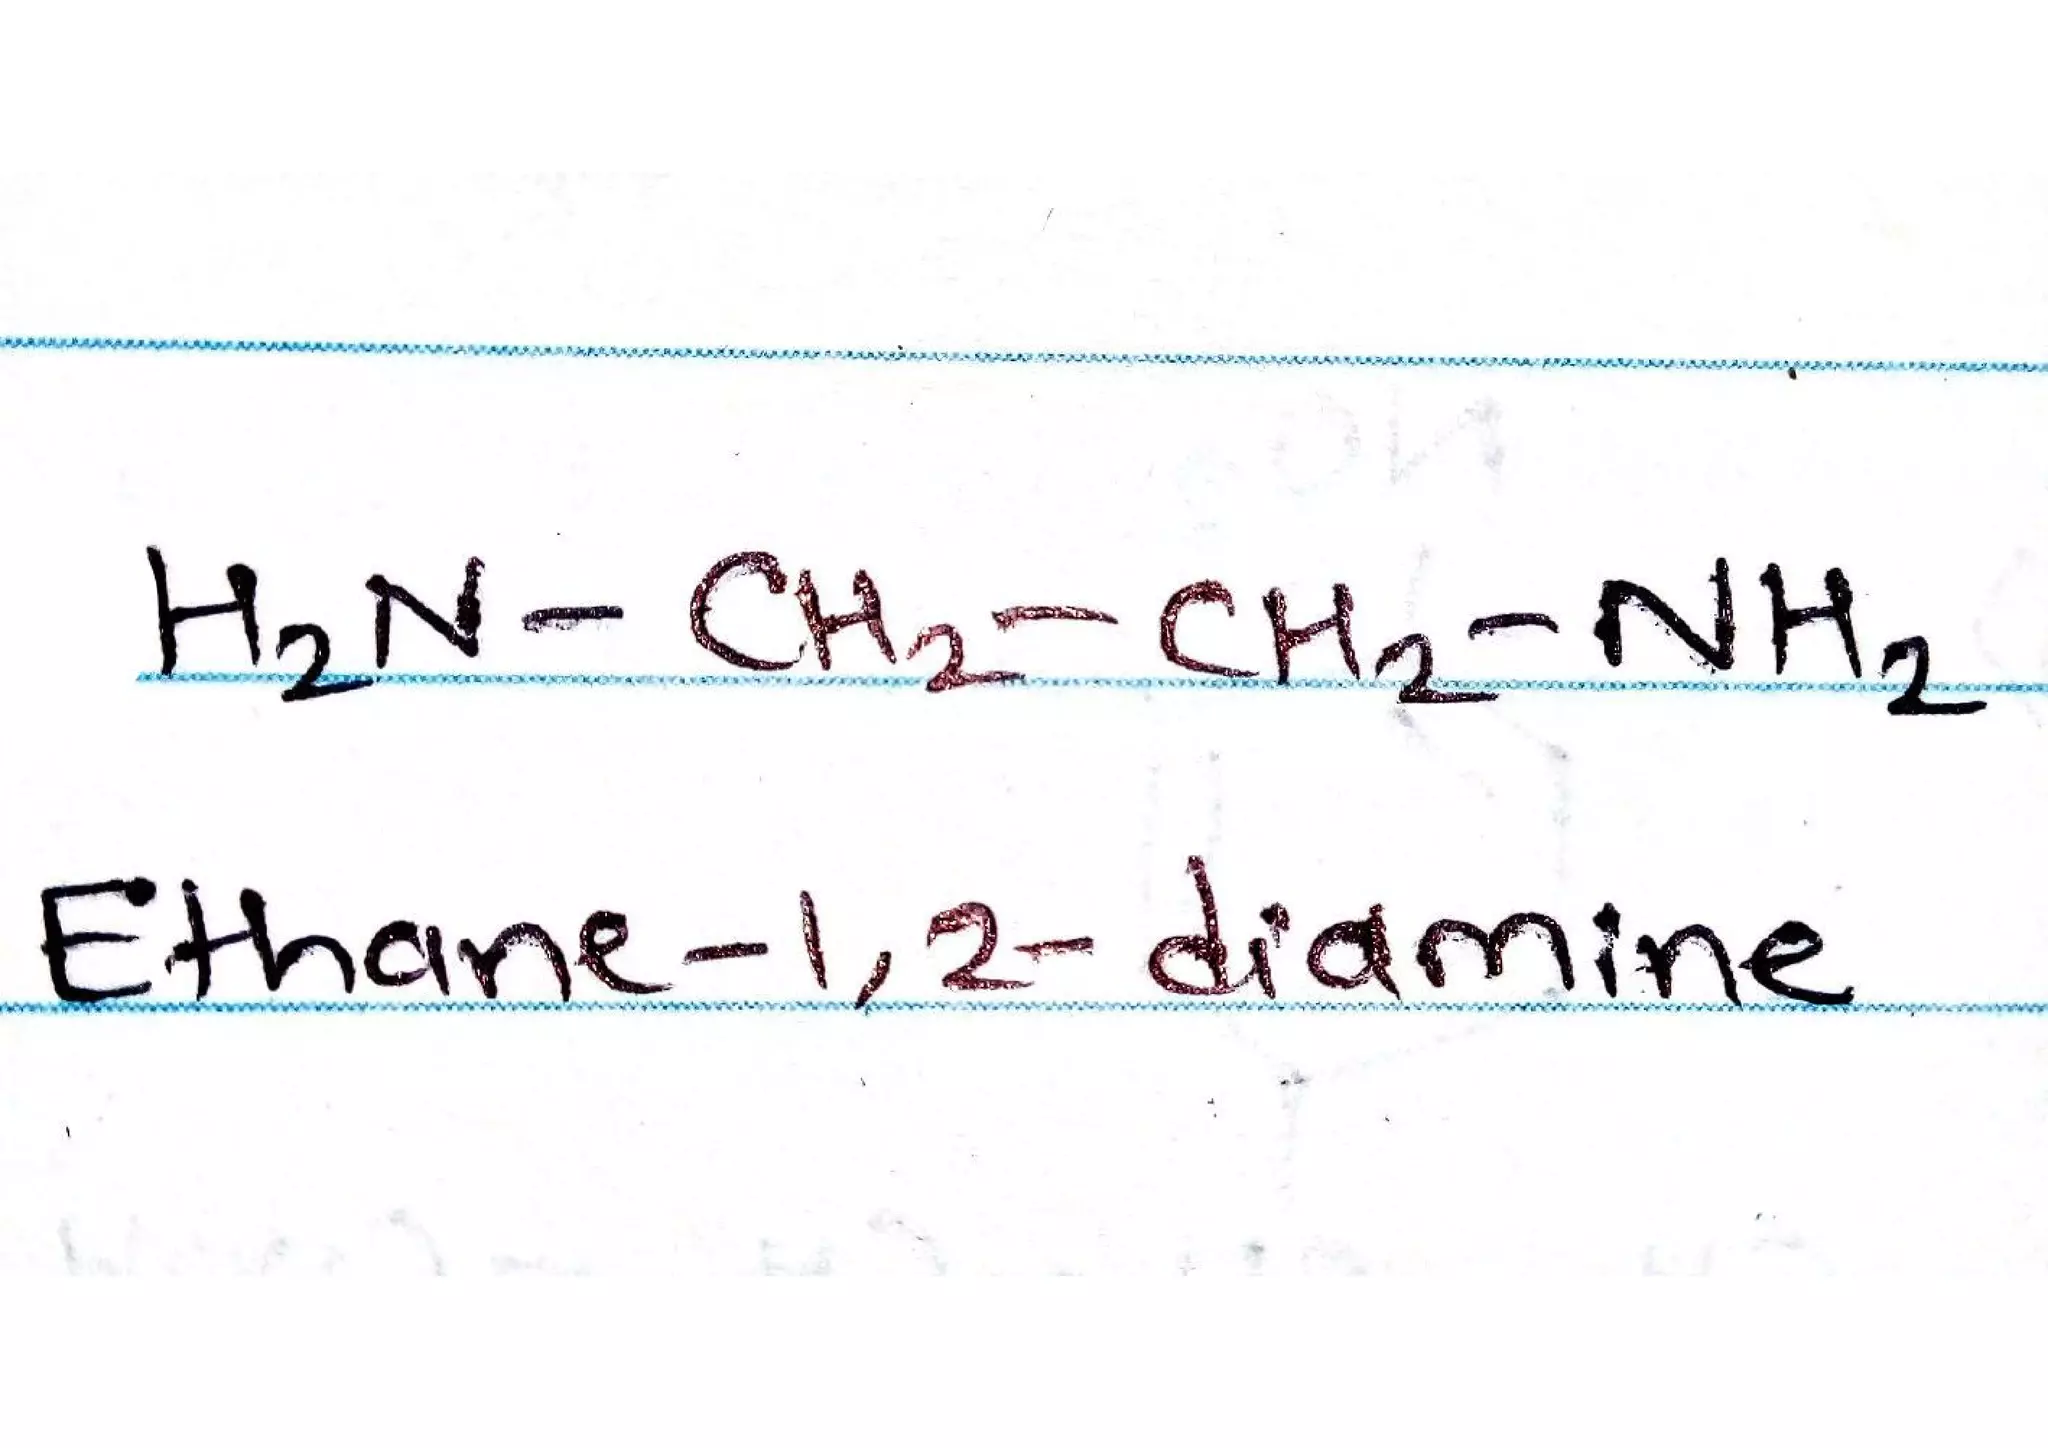 H₂N-CH₂-CH₂-NH₂
Ethane-1,2-diamine